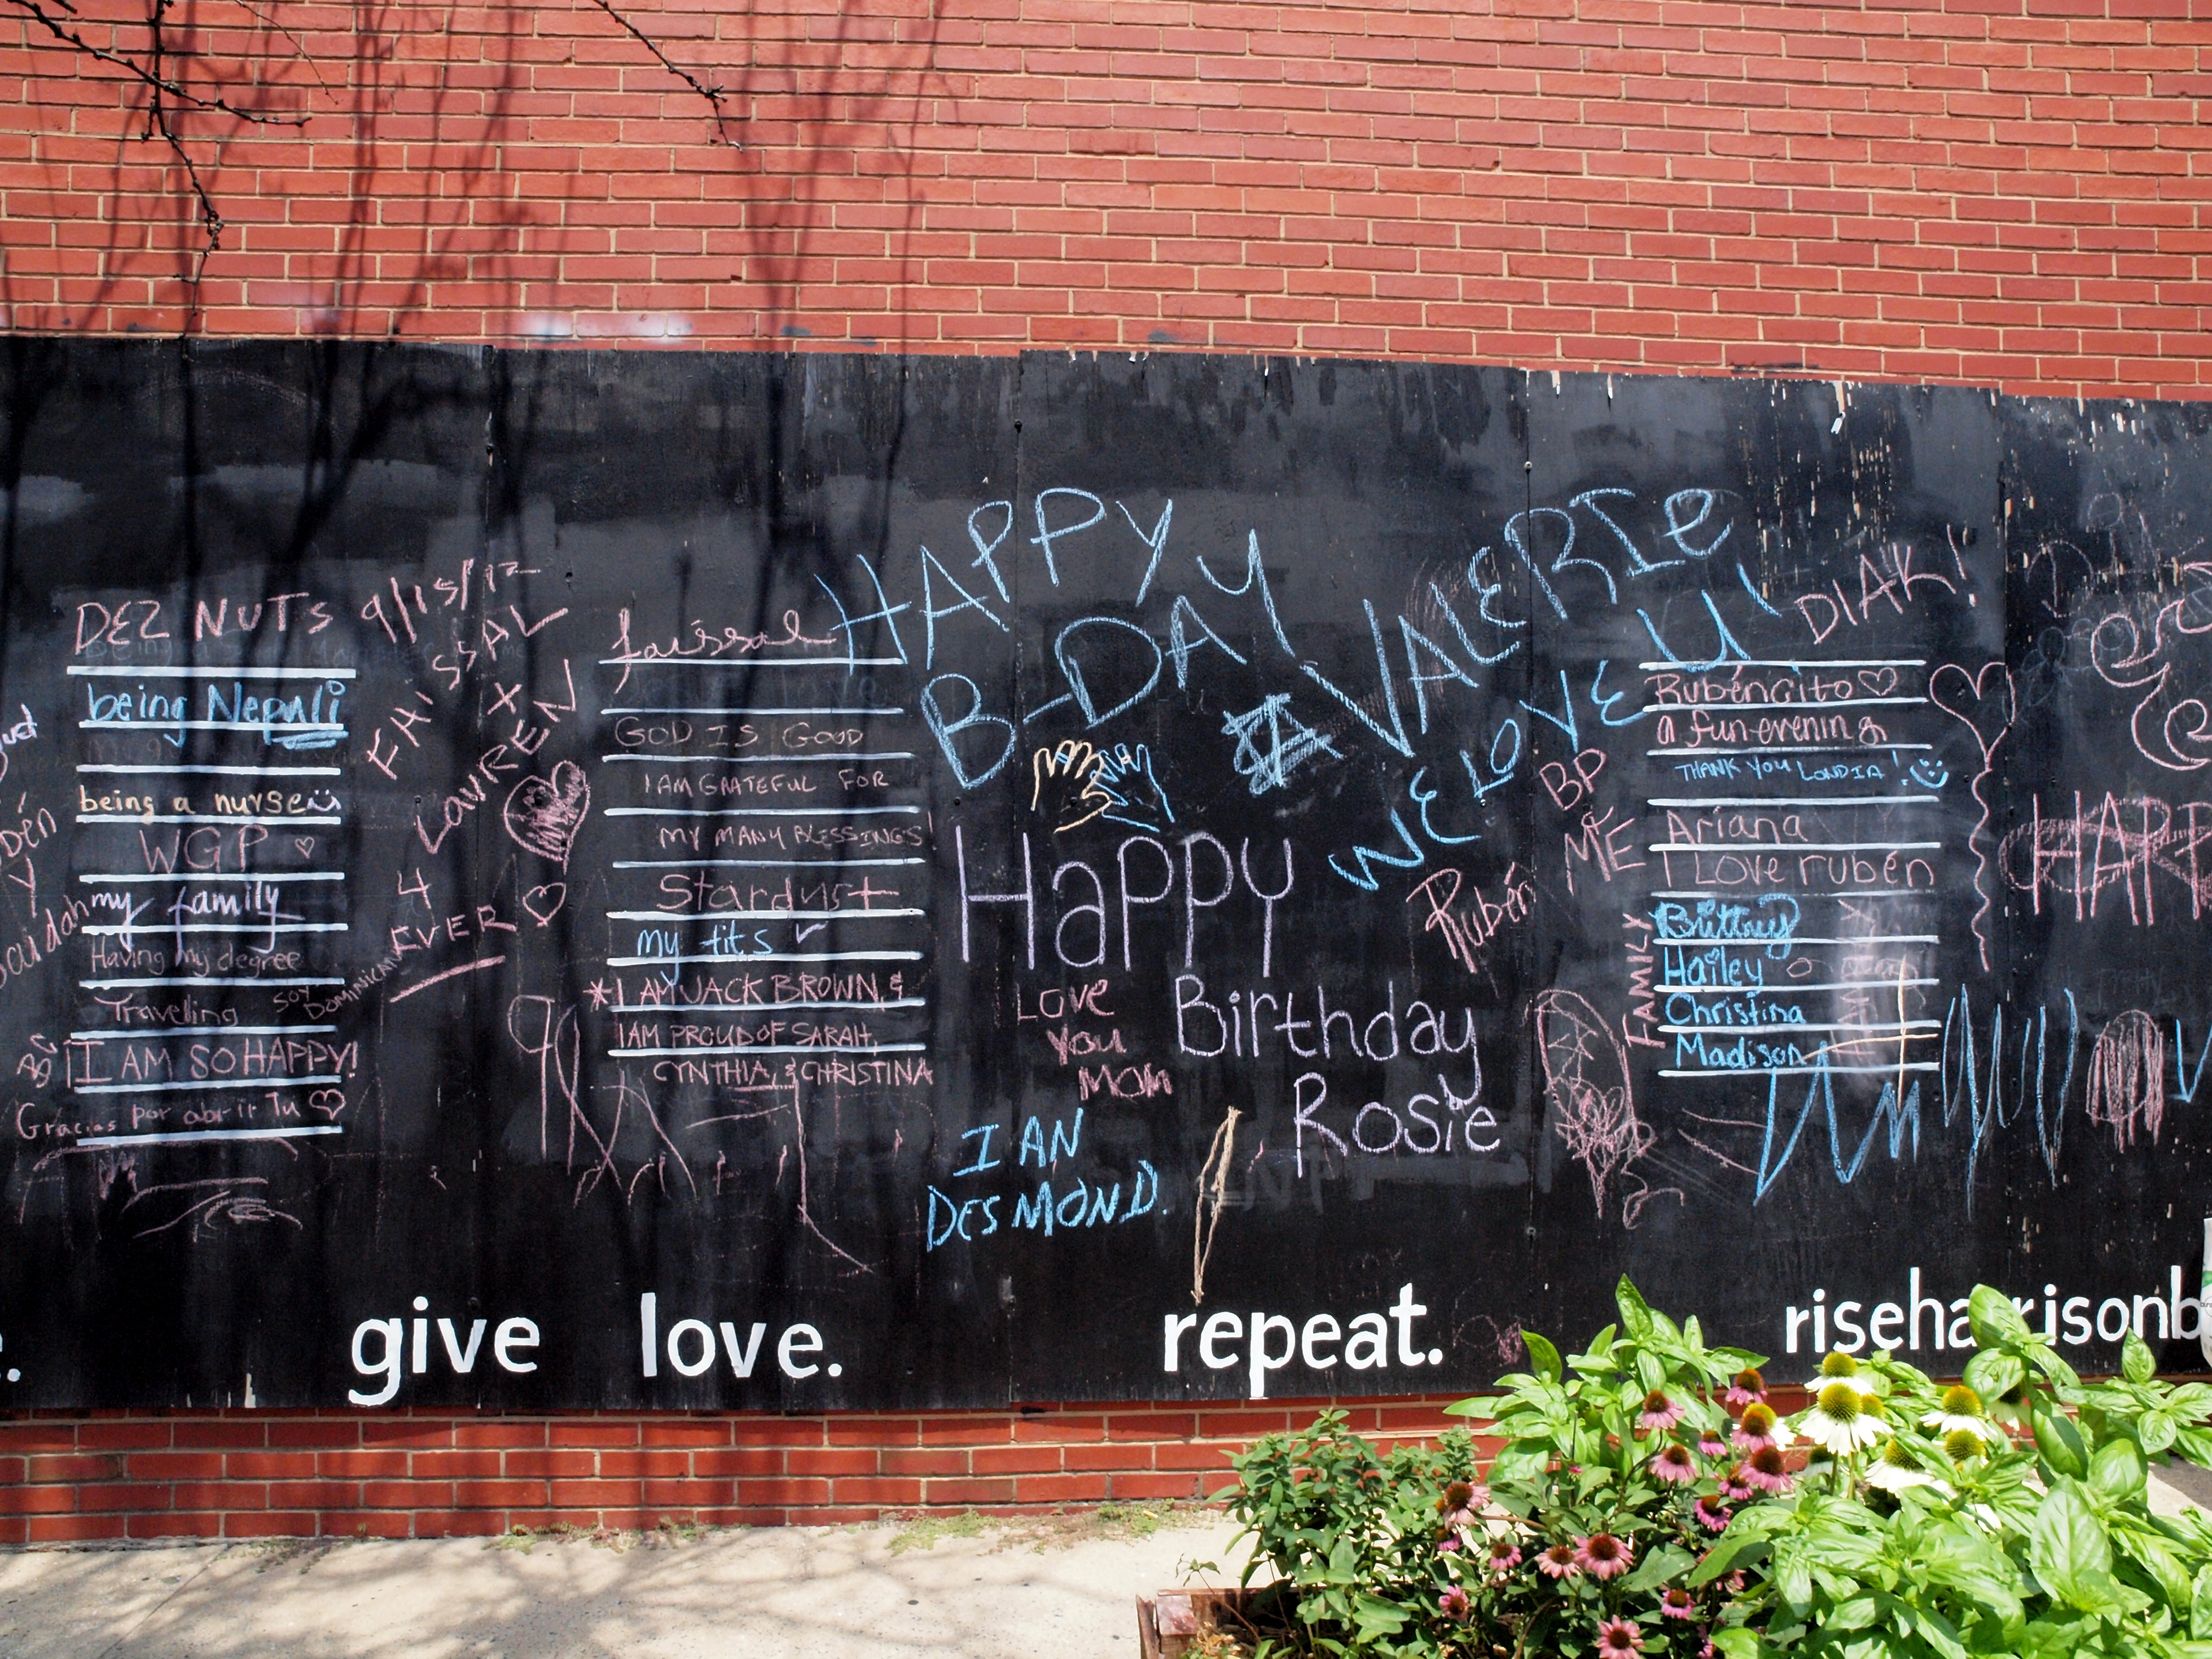 DEZ NUTS 9/15/12
being Nepali
being a nurse
WGP
my family
Having my degree
Traveling
SOY
DOMINICAN
I AM SO HAPPY!
Gracias por abrir Tu
FHISSAL
X
LAUREN
4
EVER
faissal
GOD IS GOOD
I AM GRATEFUL FOR
MY MANY BLESSINGS!
Stardust
my tits
*I AM JACK BROWN, &
I AM PROUD OF SARAH,
CYNTHIA, & CHRISTINA
HAPPY
B-DAY
VALERIE
WE LOVE U!
HaPPY
Birthday
Rosie
Love
You
MOM
IAN
DESMOND.
Rubén
BP
&
ME
DIAK!
Rubéncito
a fun evening
THANK YOU LONDIA!
Ariana
I Love rubén
FAMILY
Brittney
Hailey
Christina
Madison
give love.
repeat.